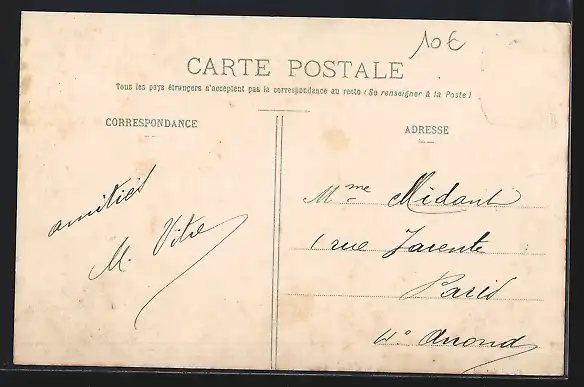 10€
CARTE POSTALE
Tous les pays étrangers n'acceptent pas la correspondance au recto (Se renseigner à la Poste)
CORRESPONDANCE
ADRESSE
amitiés
M. Vitre
Mme Midant
1 rue Jarente
Paris
4e